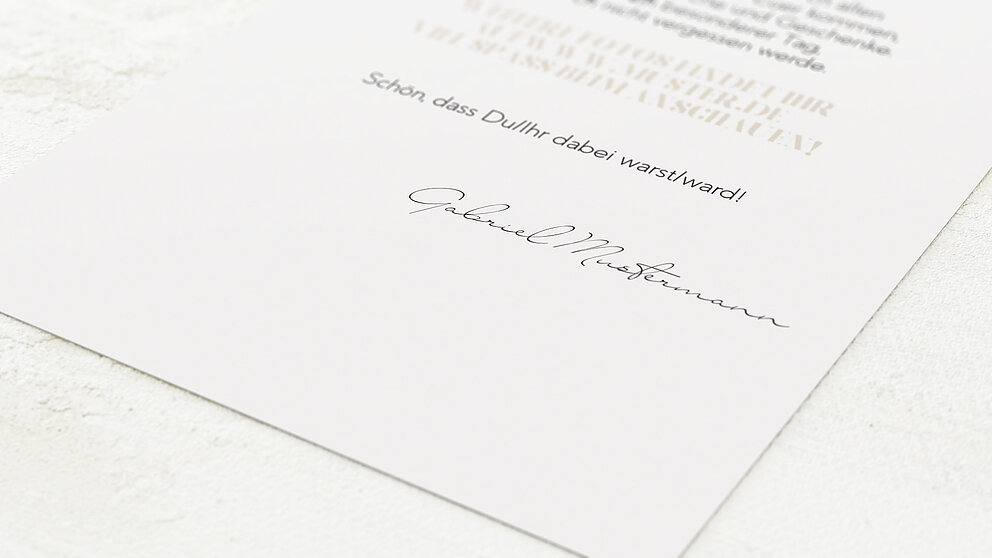 allen
kommen,
und Geschenke.
besonderer Tag,
nicht vergessen werde.
WEITERE FOTOS FINDET IHR
AUF WWW.MUSTER.DE
VIEL SPASS BEIM ANSCHAUEN!
Schön, dass Du/Ihr dabei warst/ward!
Gabriel Mustermann